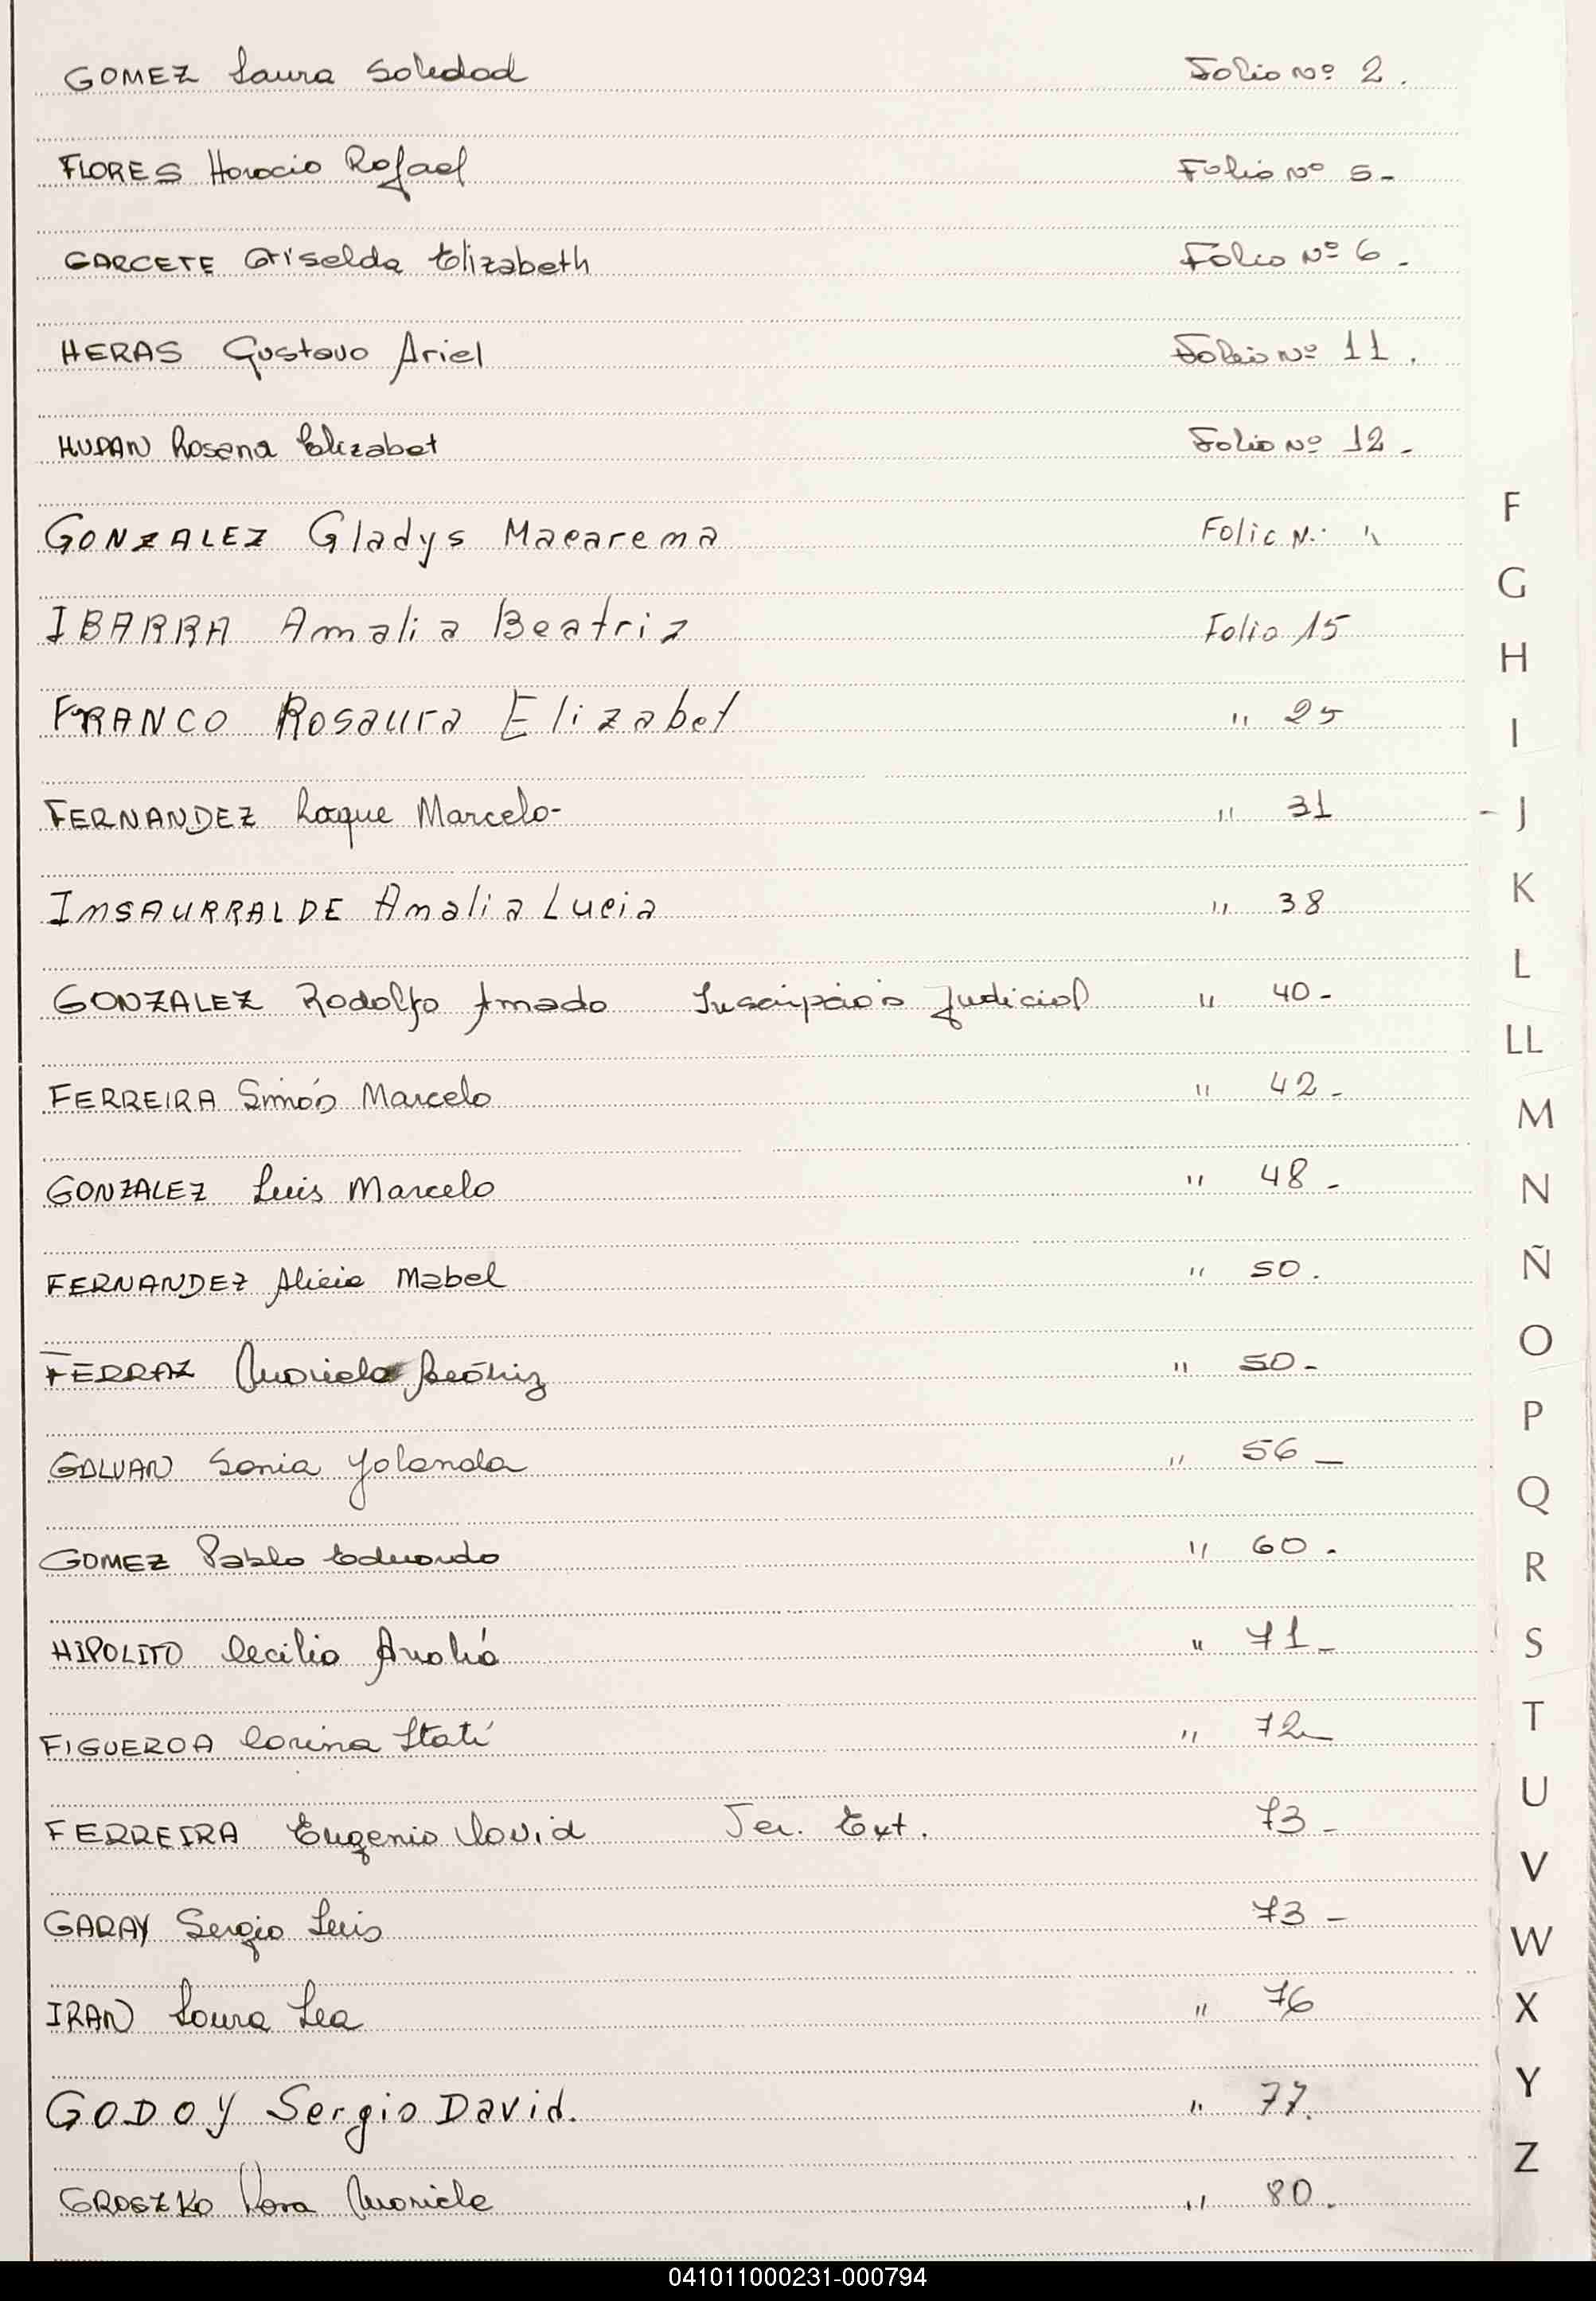 GOMEZ Laura Soledad Folio Nº 2.
FLORES Horacio Rafael Folio Nº 5-
GARCETE Griselda Elizabeth Folio Nº 6-
HERAS Gustavo Ariel Folio Nº 11.
Rosana Elizabet Folio Nº 12-
GONZALEZ Gladys Macarena Folio N.
IBARRA Amalia Beatriz Folio 15
FRANCO Rosaura Elizabet " 25
FERNANDEZ Roque Marcelo- " 31
INSAURRALDE Analia Lucia " 38
GONZALEZ Rodolfo Amado Inscripción Judicial " 40-
FERREIRA Simón Marcelo " 42-
GONZALEZ Luis Marcelo " 48-
FERNANDEZ Alicia Mabel " 50.
FERRAZ Mariela Beatriz " 50-
GALVAN Sonia Yolanda " 56-
GOMEZ Pablo Eduardo " 60-
HIPOLITO Cecilia Analía " 71-
FIGUEROA Corina Itatí " 72-
FERREIRA Eugenio David Ter. Ext. 73-
GARAY Sergio Luis 73-
IRAN Laura Lea " 76
GODOY Sergio David. " 77.
GROSZKO Nora Mariela " 80.
F
G
H
I
- J
K
L
LL
M
N
Ñ
O
P
Q
R
S
T
U
V
W
X
Y
Z
041011000231-000794